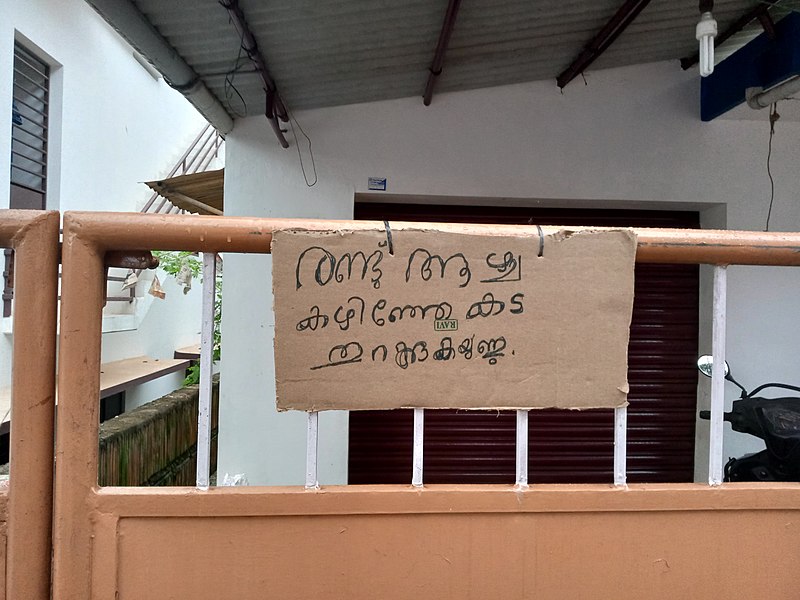 രണ്ടു ആഴ്ച
കഴിഞ്ഞേ കട
RAVI
തുറക്കുകയുള്ളു.